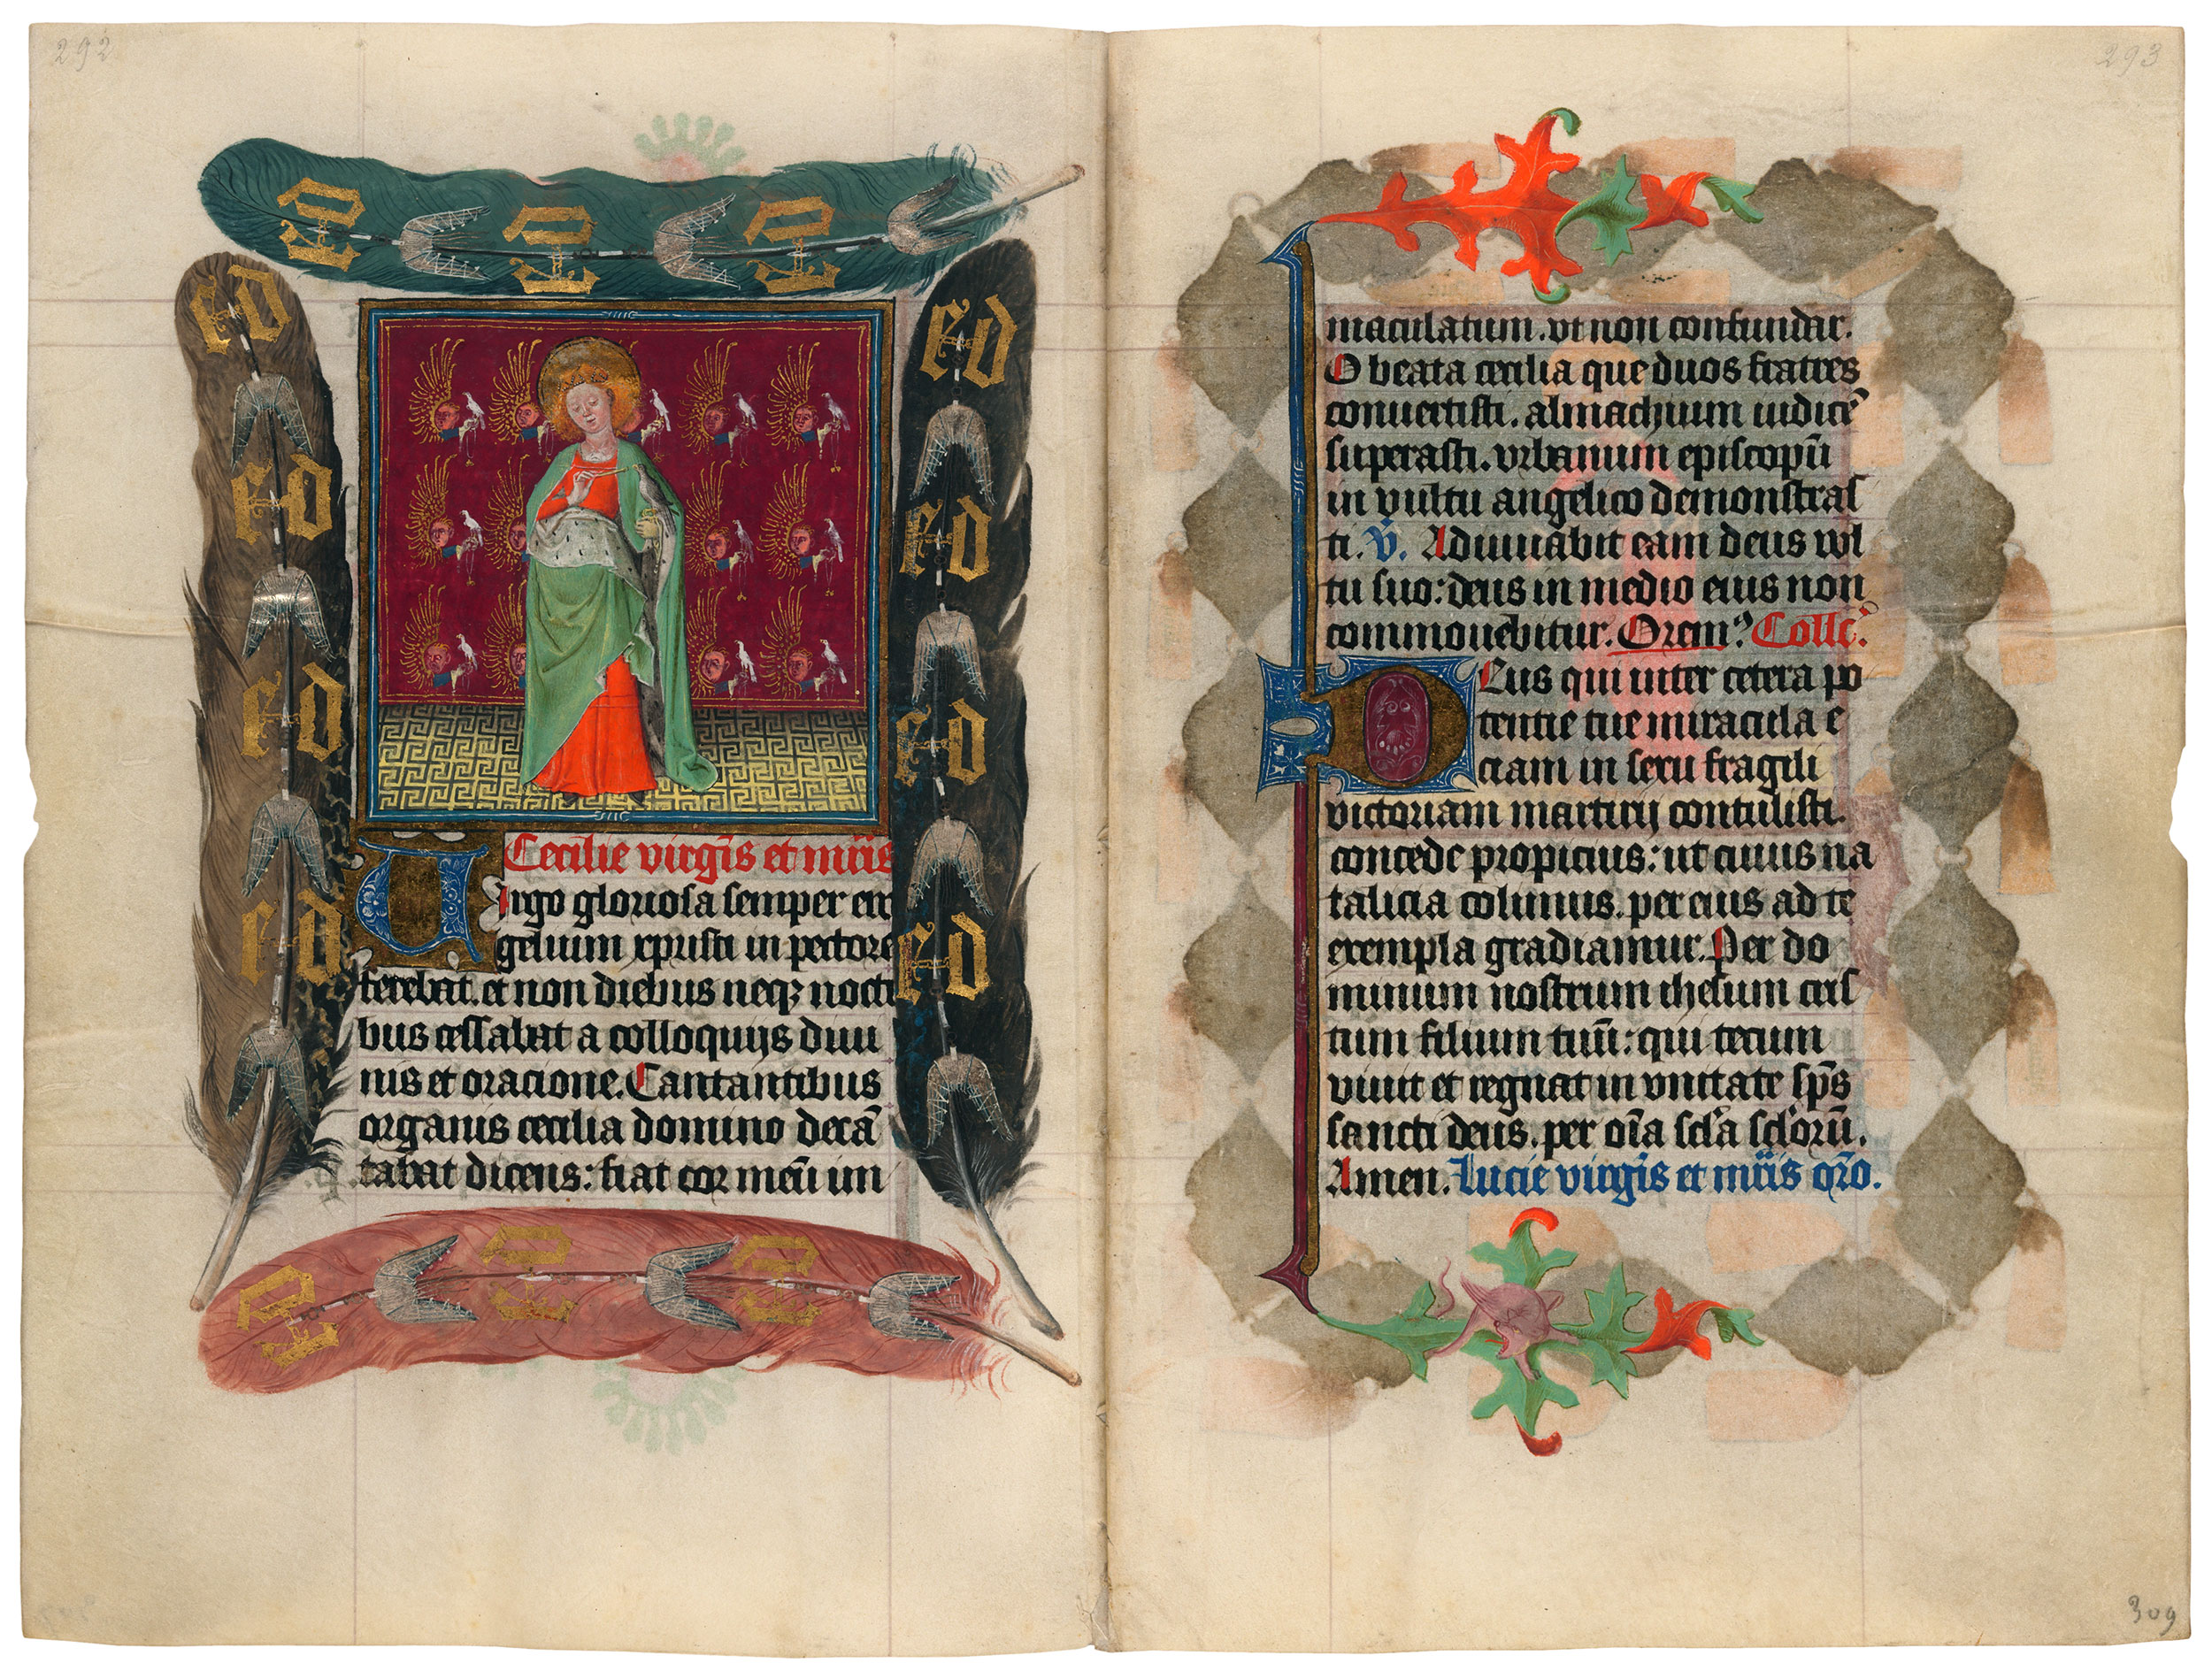 292
ed ed ed
ed ed
ed ed
ed ed
ed ed
Cecilie virgīs et mr̄is
Uirgo gloriosa semper eu
geliium xpristi in pectore
ferebat. et non diebus neqꝫ nocti
bus cessabat a colloquijs diui
nis et oracione. Cantantibus
organis cecilia domino decā
tabat dicens: fiat cor meū im
ed ed ed
293
maculatum. vt non confundar.
O beata cecilia que duos fratres
conuertisti. almachium iudicē
superasti. vrbanum episcopū
in vultu angelico demonstras
ti. v̄. Adiuuabit eam deus wl
tu suo: deus in medio eius non
commouebitur. Orem⁹ Colle.
DEus qui inter cetera po
tentie tue miracula e
ciam in sexu fragili
victoriam martirij contulisti.
concede propicius: ut cuius na
talicia colimus. per eius ad te
exempla gradiamur. Per do
minum nostrum ihesum cris
tum filium tuū: qui tecum
viuit et regnat in vnitate sp̄s
sancti deus. per oīa scl̄a scl̄orū.
Amen. Lucie virgīs et mr̄is or̄o.
309